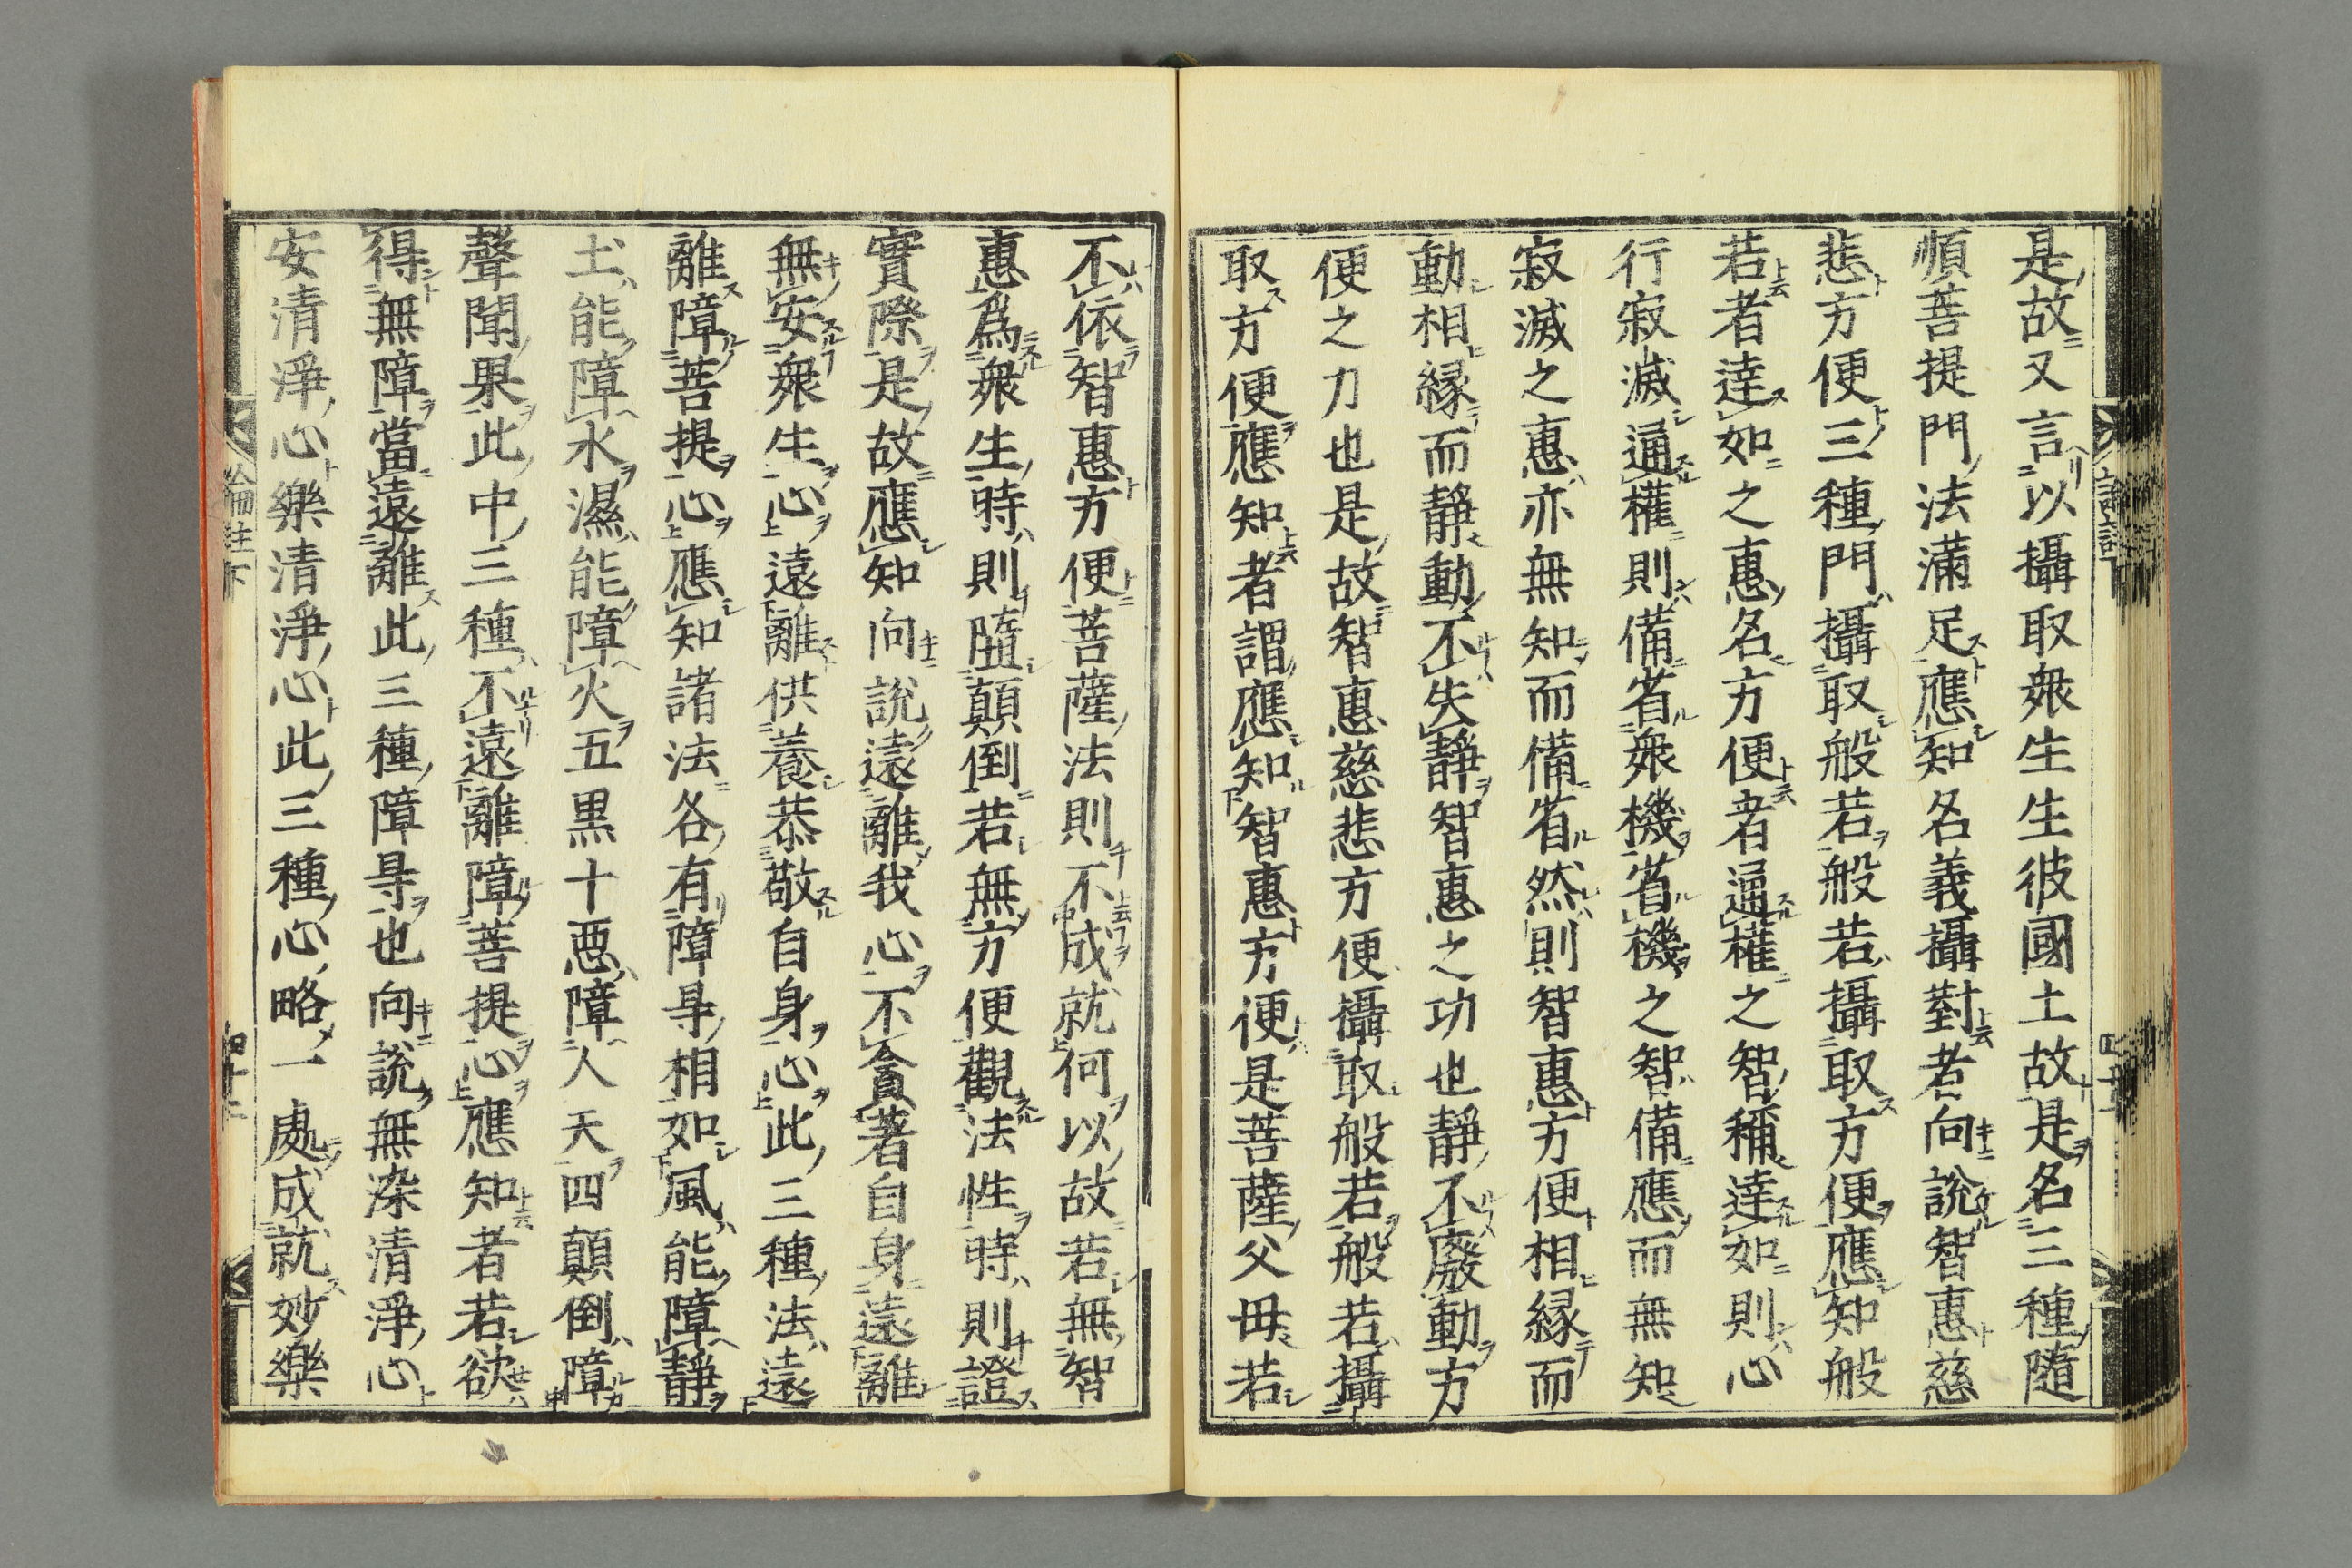 是故又言以攝取衆生生彼國土故是名三種隨
順菩提門法滿足應知名義攝對者向說智惠慈
悲方便三種門攝取般若般若攝取方便應知般
若者達如之惠名方便者通權之智稱達如則心
行寂滅通權則備省衆機省機之智備應而無知
寂滅之惠亦無知而備省然則智惠方便相縁而
動相縁而靜動不失靜智惠之功也靜不廢動方
便之力也是故智惠慈悲方便攝取般若般若攝
取方便應知者謂應知智惠方便是菩薩父母若
不依智惠方便菩薩法則不成就何以故若無智
惠爲衆生時則墮顛倒若無方便觀法性時則證
實際是故應知向說遠離我心不貪著自身遠離
無安衆生心遠離供養恭敬自身心此三種法遠
離障菩提心應知諸法各有障㝵相如風能障靜
土能障水濕能障火五黒十惡障人天四顛倒障
聲聞果此中三種不遠離障菩提心應知者若欲
得無障當遠離此三種障㝵也向說無染清淨心
安清淨心樂清淨心此三種心略一處成就妙樂
論註下